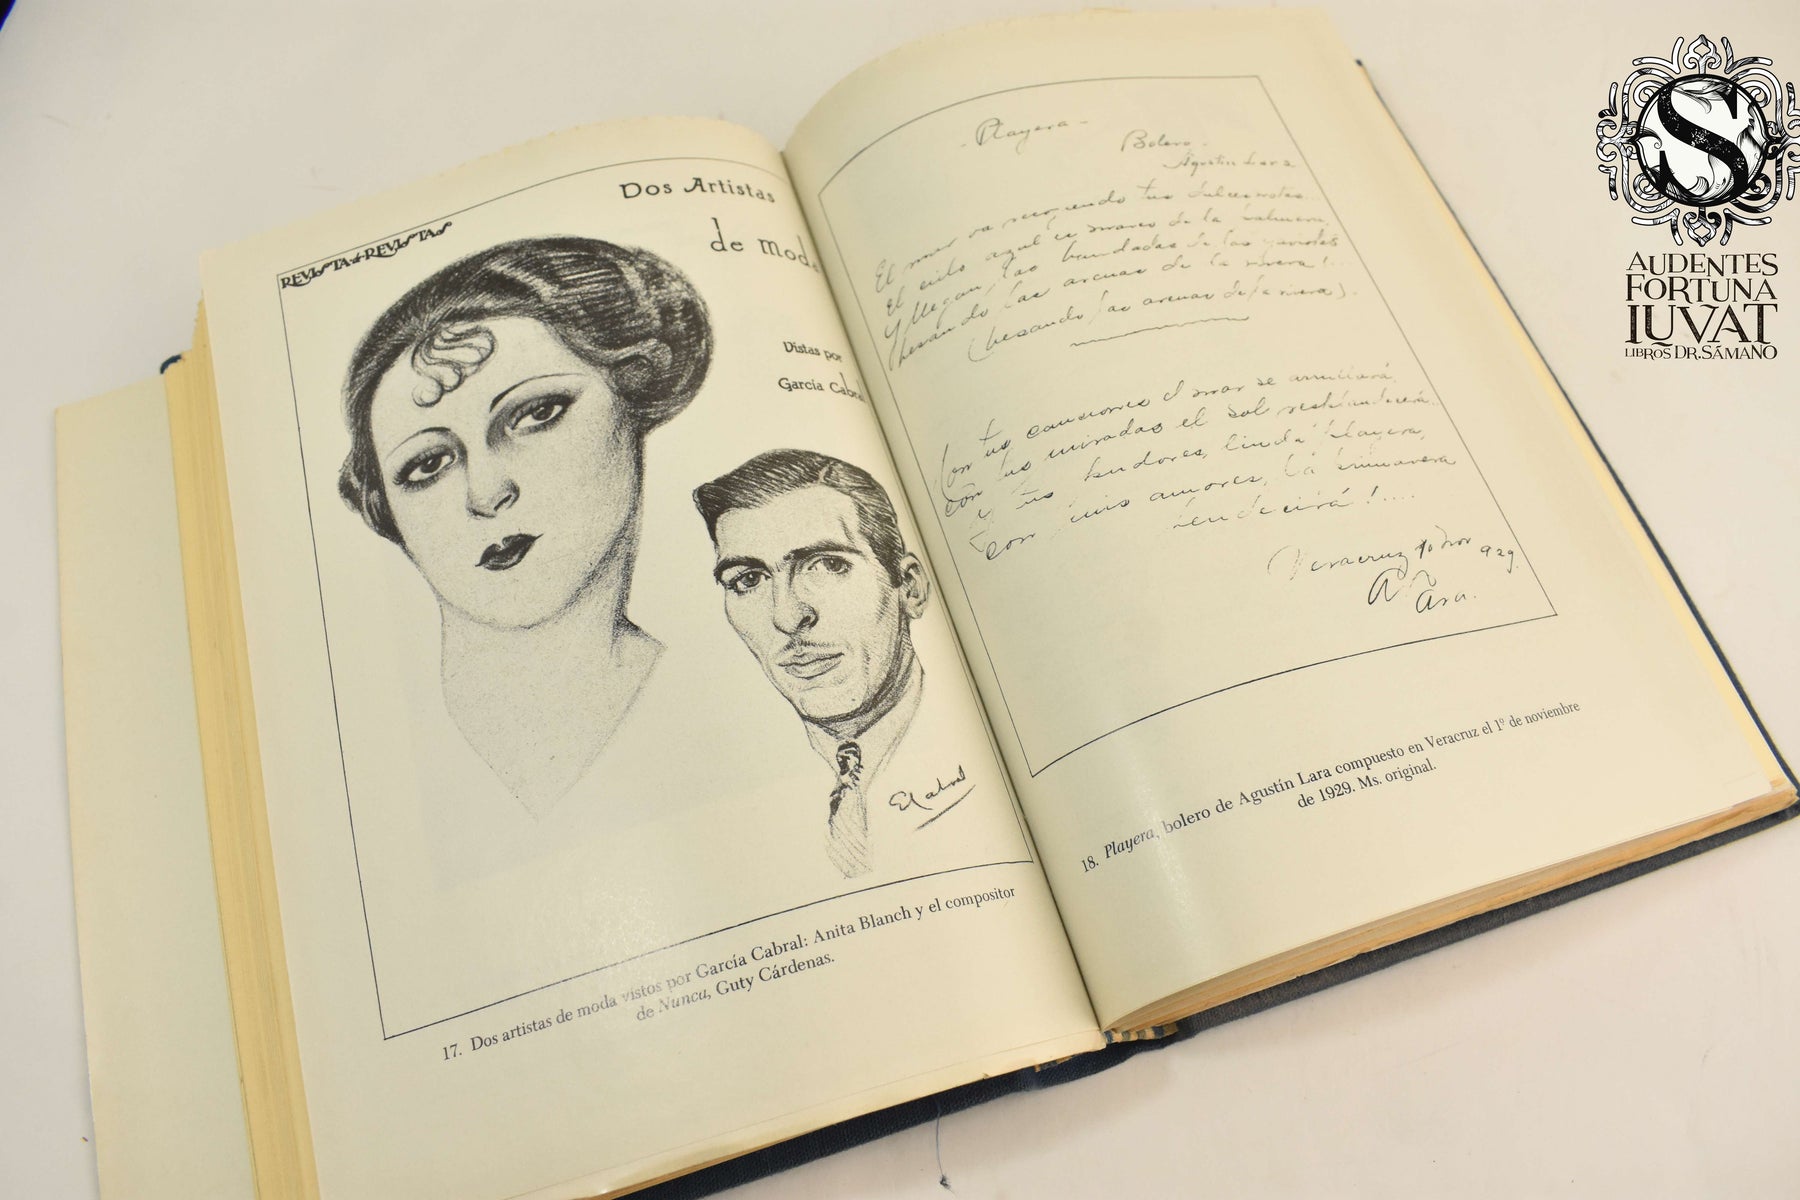 REVISTA de REVISTAS
Dos Artistas
de moda
Vistas por
García Cabral
EGCabral
17. Dos artistas de moda vistos por García Cabral: Anita Blanch y el compositor
de Nunca, Guty Cárdenas.
- Playera -
Bolero -
Agustín Lara
El mar va recogiendo tus dulces notas...
El cielo azul es marco de la palmera,
y llegan, las bandadas de las gaviotas
besando las arenas de la rivera!...
(besando las arenas de la rivera).
Con tus canciones el mar se arrullará,
con tus miradas el Sol resplandecerá..
y tus, linda playera,
con mis amores, la primavera
bendecirá!....
Veracruz 1o nov 929.
A Lara.
18. Playera, bolero de Agustín Lara compuesto en Veracruz el 1º de noviembre
de 1929. Ms. original.
S
AUDENTES
FORTUNA
IUVAT
LIBROS DR. SÁMANO